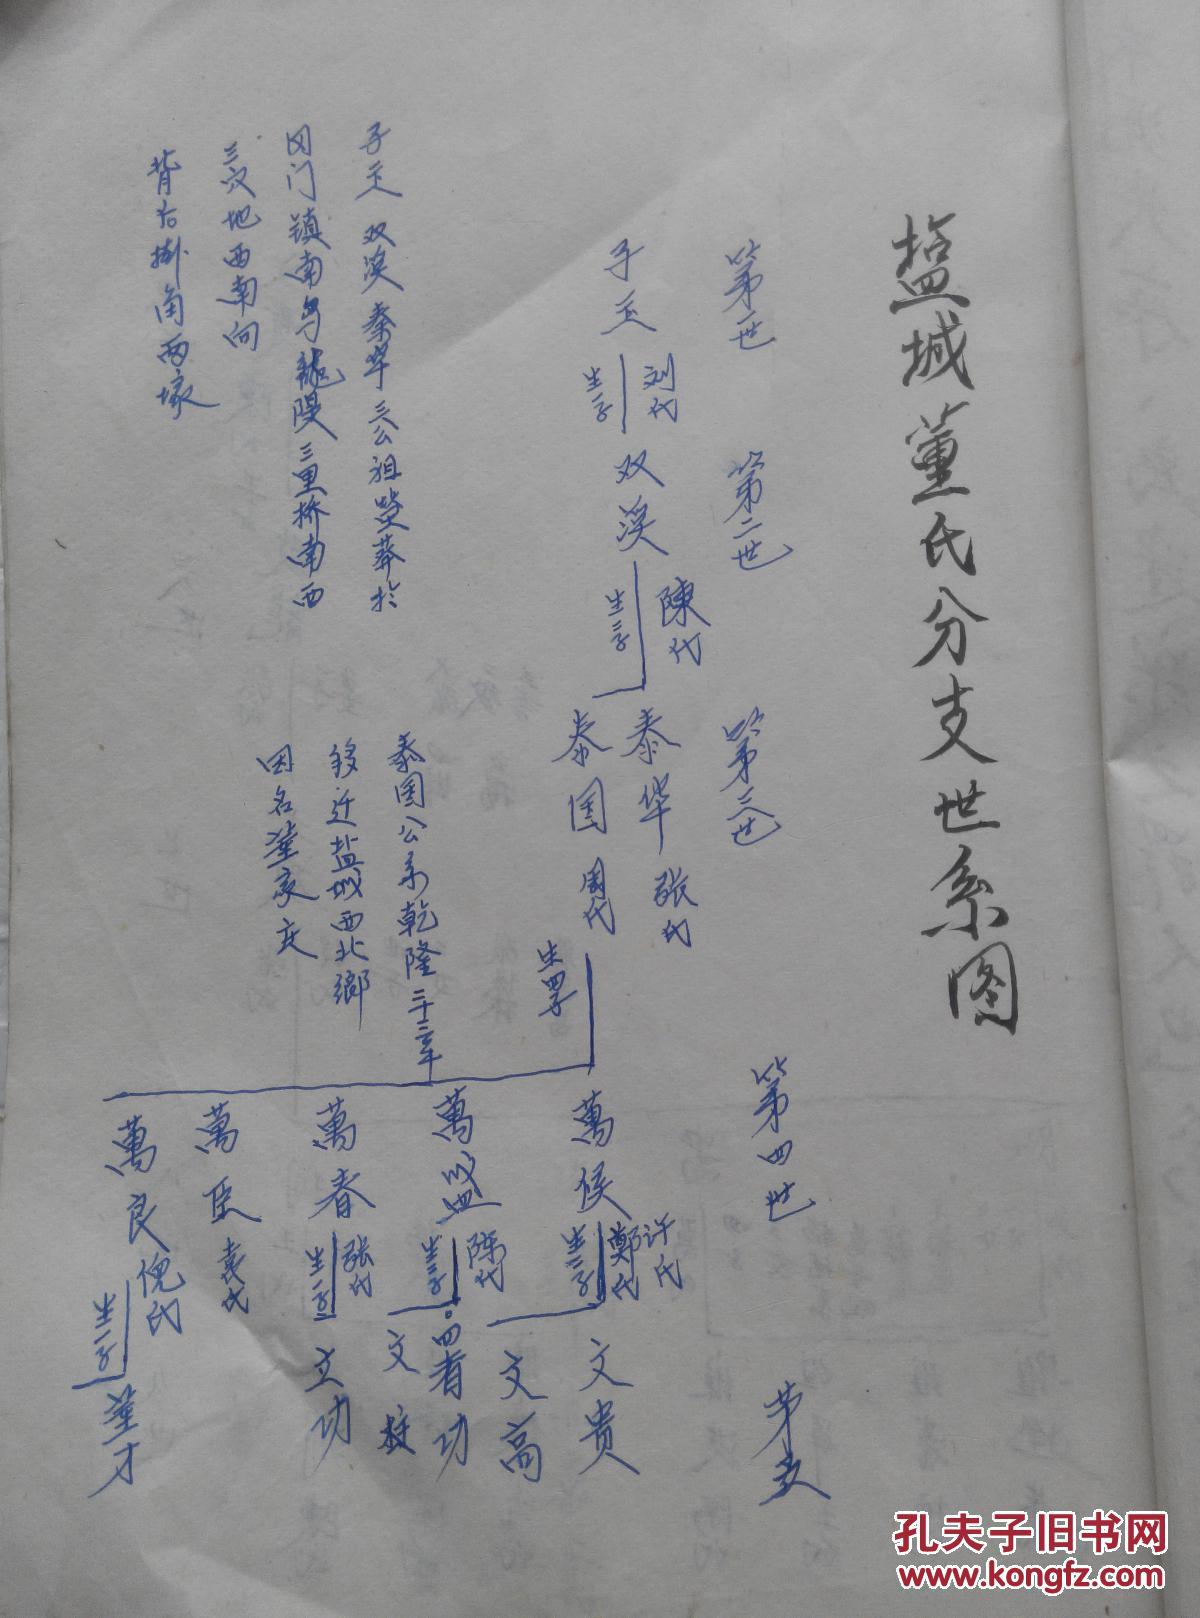 盐城董氏分支世系图
第一世
第二世
第三世
第四世
第五
子玉
刘氏
生一子
双溪
陳氏
生二子
泰华
张氏
泰国
周氏
生四子
萬侯
许氏
鄭氏
生二子
文贵
文高
萬盛
陈氏
生二子
四有功
文
萬春
张氏
生一子
立功
萬臣
袁氏
萬良
倪氏
生一子
董才
子玉 双溪 泰华 三公祖茔葬於
冈门镇南乌龍隄三里桥南西
三汊地西南向
背右掛角两塚
泰国公系乾隆二十三年
移迁盐城西北鄉
因名董家庄
孔夫子旧书网
www.kongfz.com